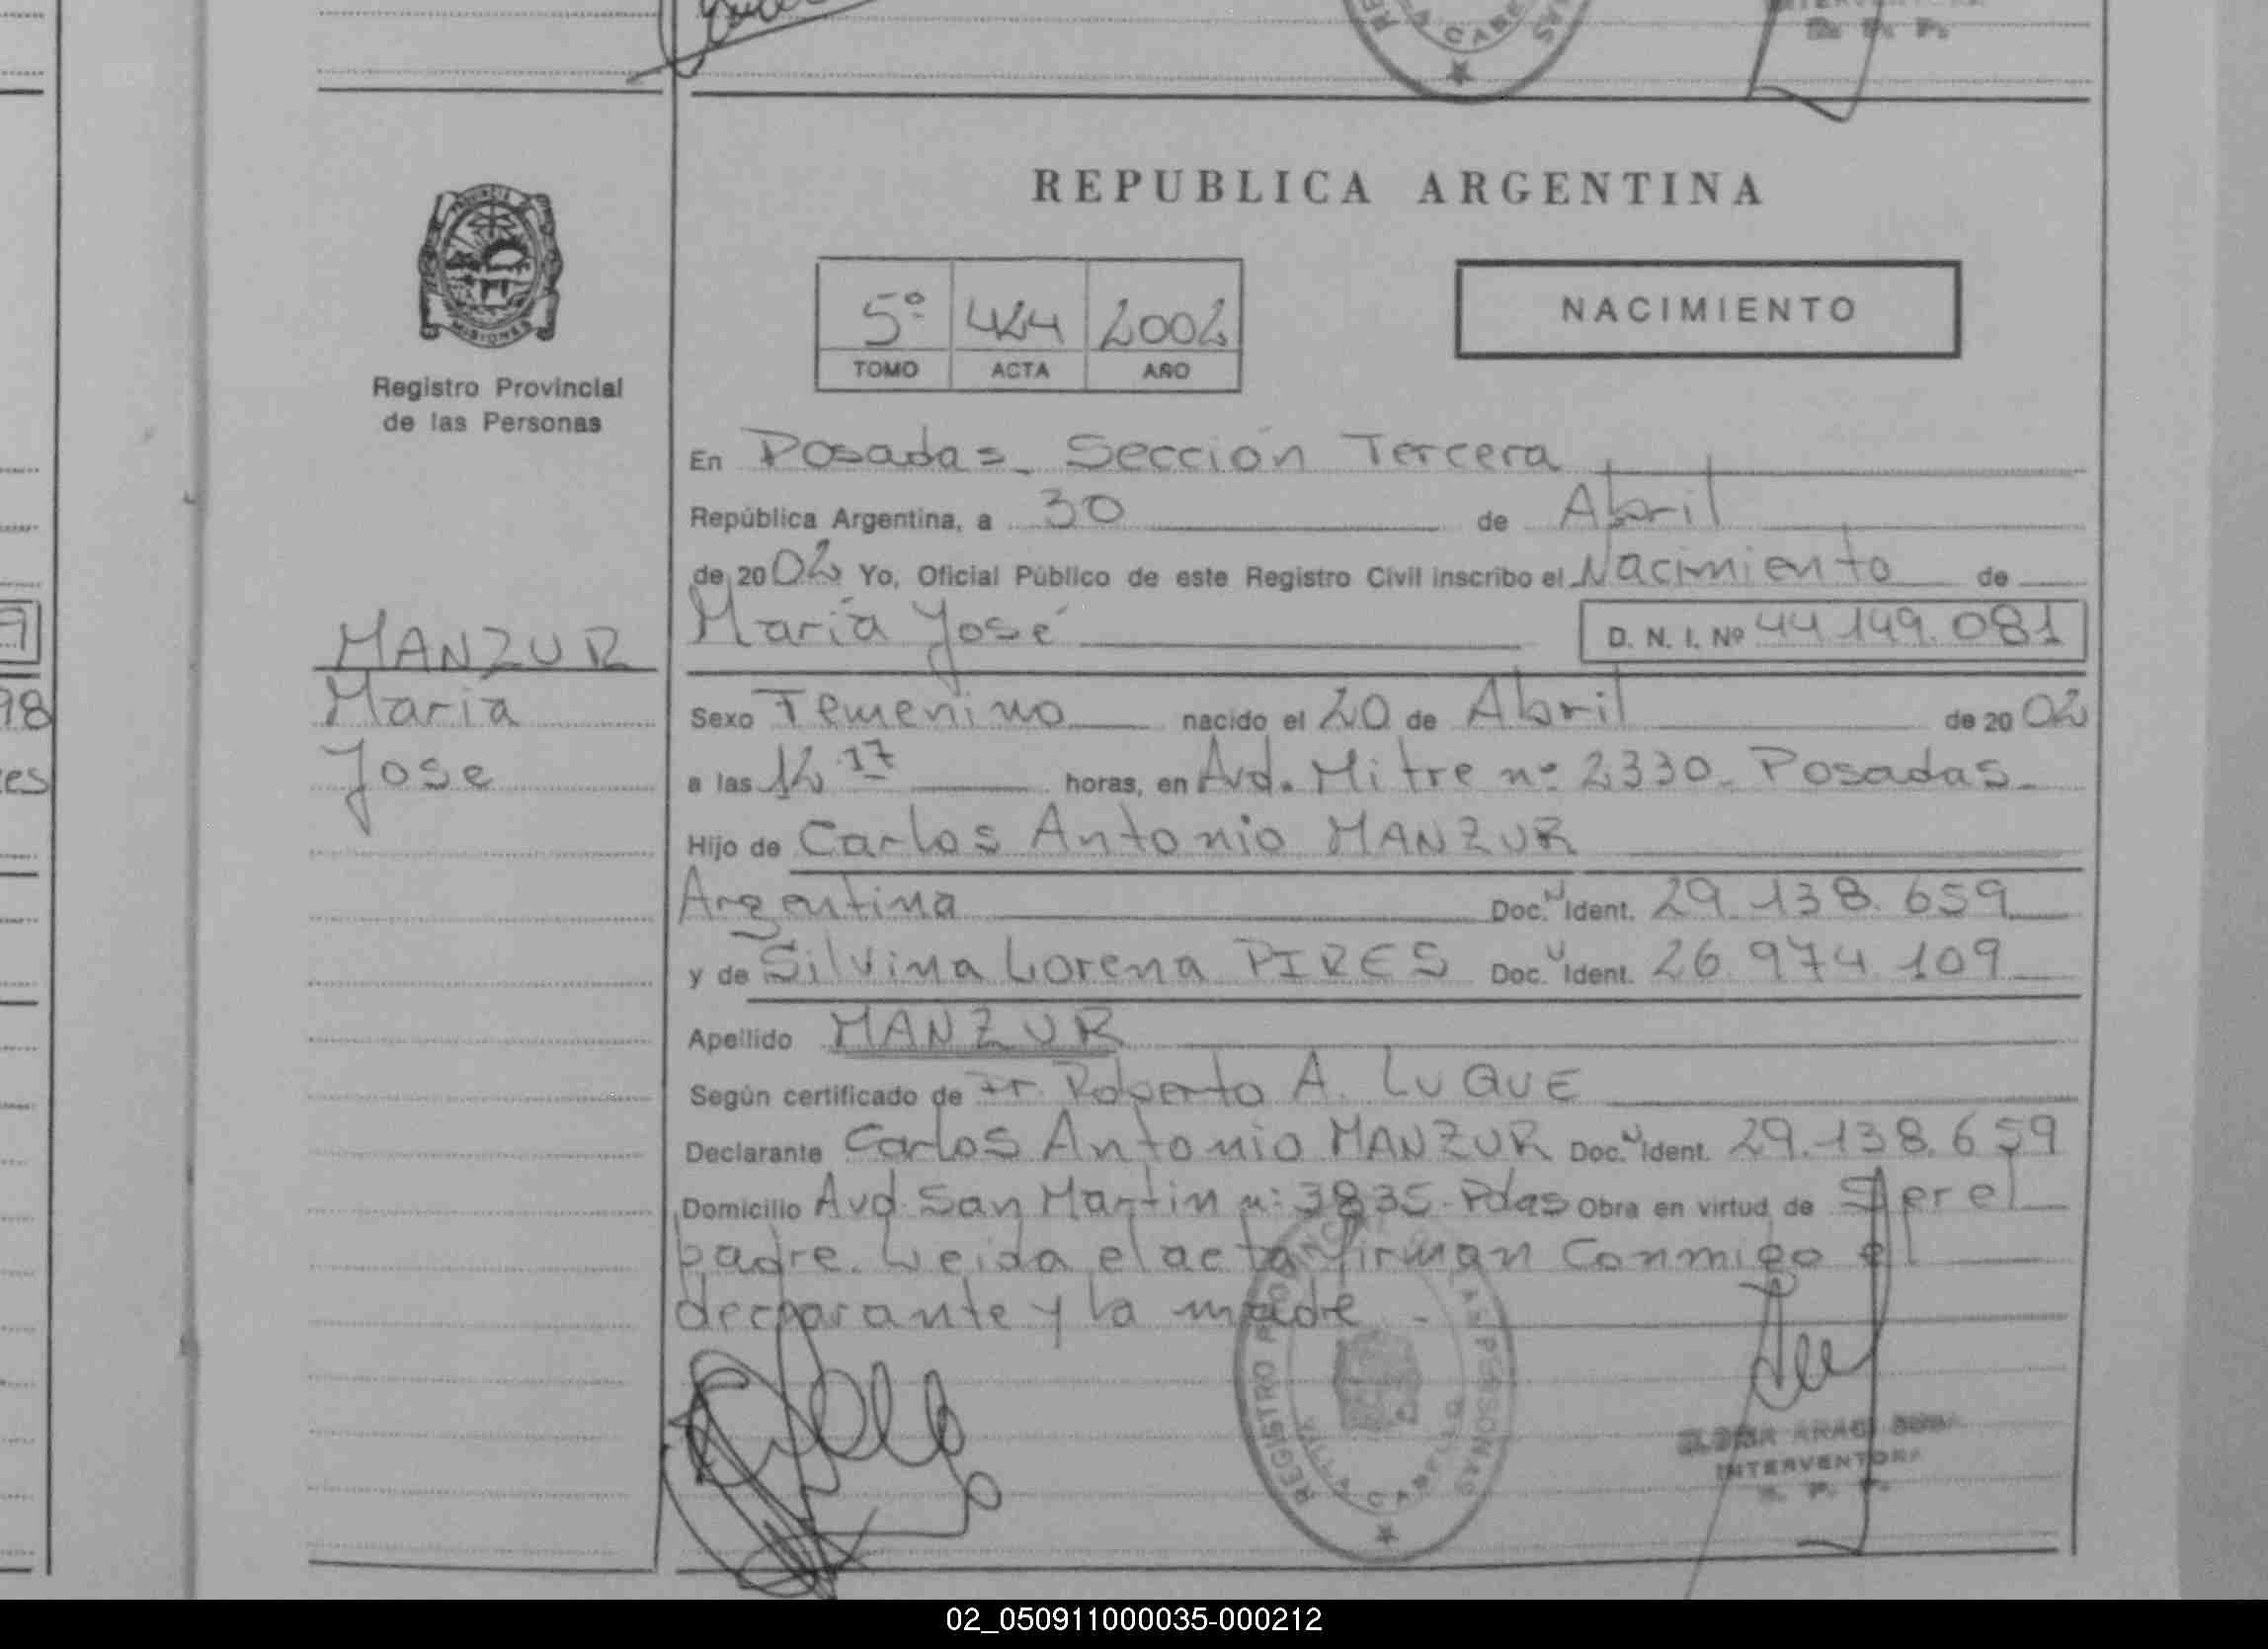 REPUBLICA ARGENTINA
PROVINCIA
MISIONES
Registro Provincial
de las Personas
5º 424 2002
TOMO ACTA AÑO
NACIMIENTO
En Posadas - Sección Tercera
República Argentina, a 30 de Abril
de 2002 Yo, Oficial Público de este Registro Civil inscribo el Nacimiento de
María José D. N. I. Nº 44.149.081
MANZUR
Maria
Jose
Sexo Femenino nacido el 20 de Abril de 2002
a las 12 17 horas, en Avd. Mitre nº 2330 - Posadas -
Hijo de Carlos Antonio MANZUR
Argentina Doc. Ident. 29.138.659
y de Silvina Lorena PIRES Doc. Ident. 26.974.109
Apellido MANZUR
Según certificado de Dr. Roberto A. LUQUE
Declarante Carlos Antonio MANZUR Doc. Ident. 29.138.659
Domicilio Avd. San Martin nº 3835 - Pdas Obra en virtud de Ser el
padre. Leida el acta firman conmigo el
declarante y la madre -
REGISTRO PERSONAS
INTERVENTORA
98
es
02_050911000035-000212